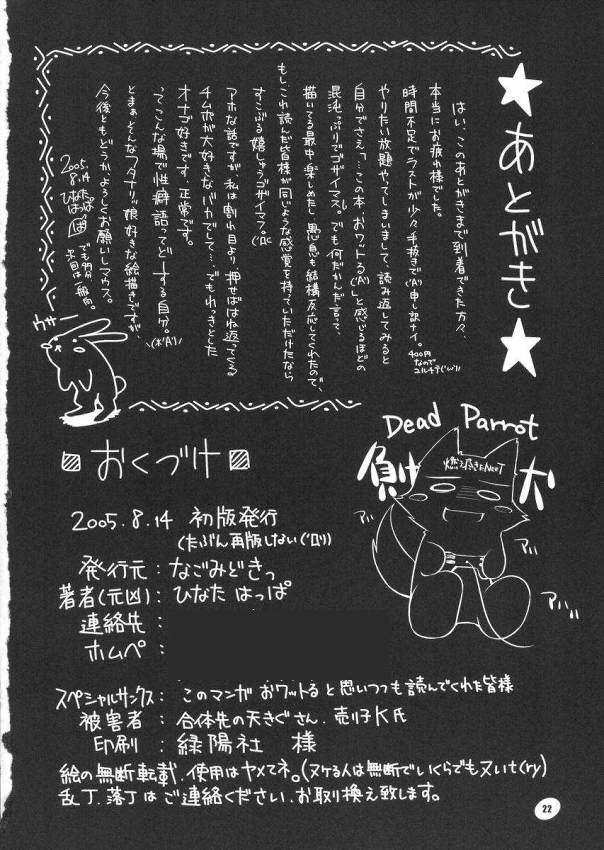 ★あとがき★
はい、このあとがきまで到着できた方々、
本当にお疲れ様でした。
時間不足でラストが少々手抜きで(´A`)申し訳ナイ。
400円
なので
ユルチテ(´ω`)
やりたい放題やってしまいまして、読み返してみると
自分でさえ「…この本 おワットる('A`)」と感じるほどの
混沌っぷりでゴザイマス。でも何だかんだ言って、
描いてる最中、楽しめたし、愚息も結構反応してくれたので、
もしこれ読んだ皆様が同じような感覚を持っていただけたなら
すこぶる嬉しゅうゴザイマフ。
アホな話ですが、私は割れ目より 押せばはね返ってくる
チムポが大好きなバカでして…でもれっきとした
オナゴ好きです。正常です。
ってこんな場で性癖語ってどーする自分。
とまぁ そんなフタナリッ娘好きな絵描きですが、
今後ともどうかよろしくお願いしマウス。
2005.
8.14
ひなた
はっぱ
でも多分
次回は一般向。
ウサー
Dead Parrot
負け犬
燃え尽きたNEET
アハ
アハ
アハハ
おくづけ
2005.8.14 初版発行
(たぶん再版しない(´Д`))
発行元:なごみどきっ
著者(元凶):ひなた はっぱ
連絡先:
ホムペ:
スペシャルサンクス:このマンガ おワットると思いつつも読んでくれた皆様
被害者:合体先の天きぐさん、売り子K氏
印刷:緑陽社 様
絵の無断転載、使用はヤメてネ。(ヌケる人は無断でいくらでも又いt(ry)
乱丁、落丁はご連絡ください、お取り換え致します。
22